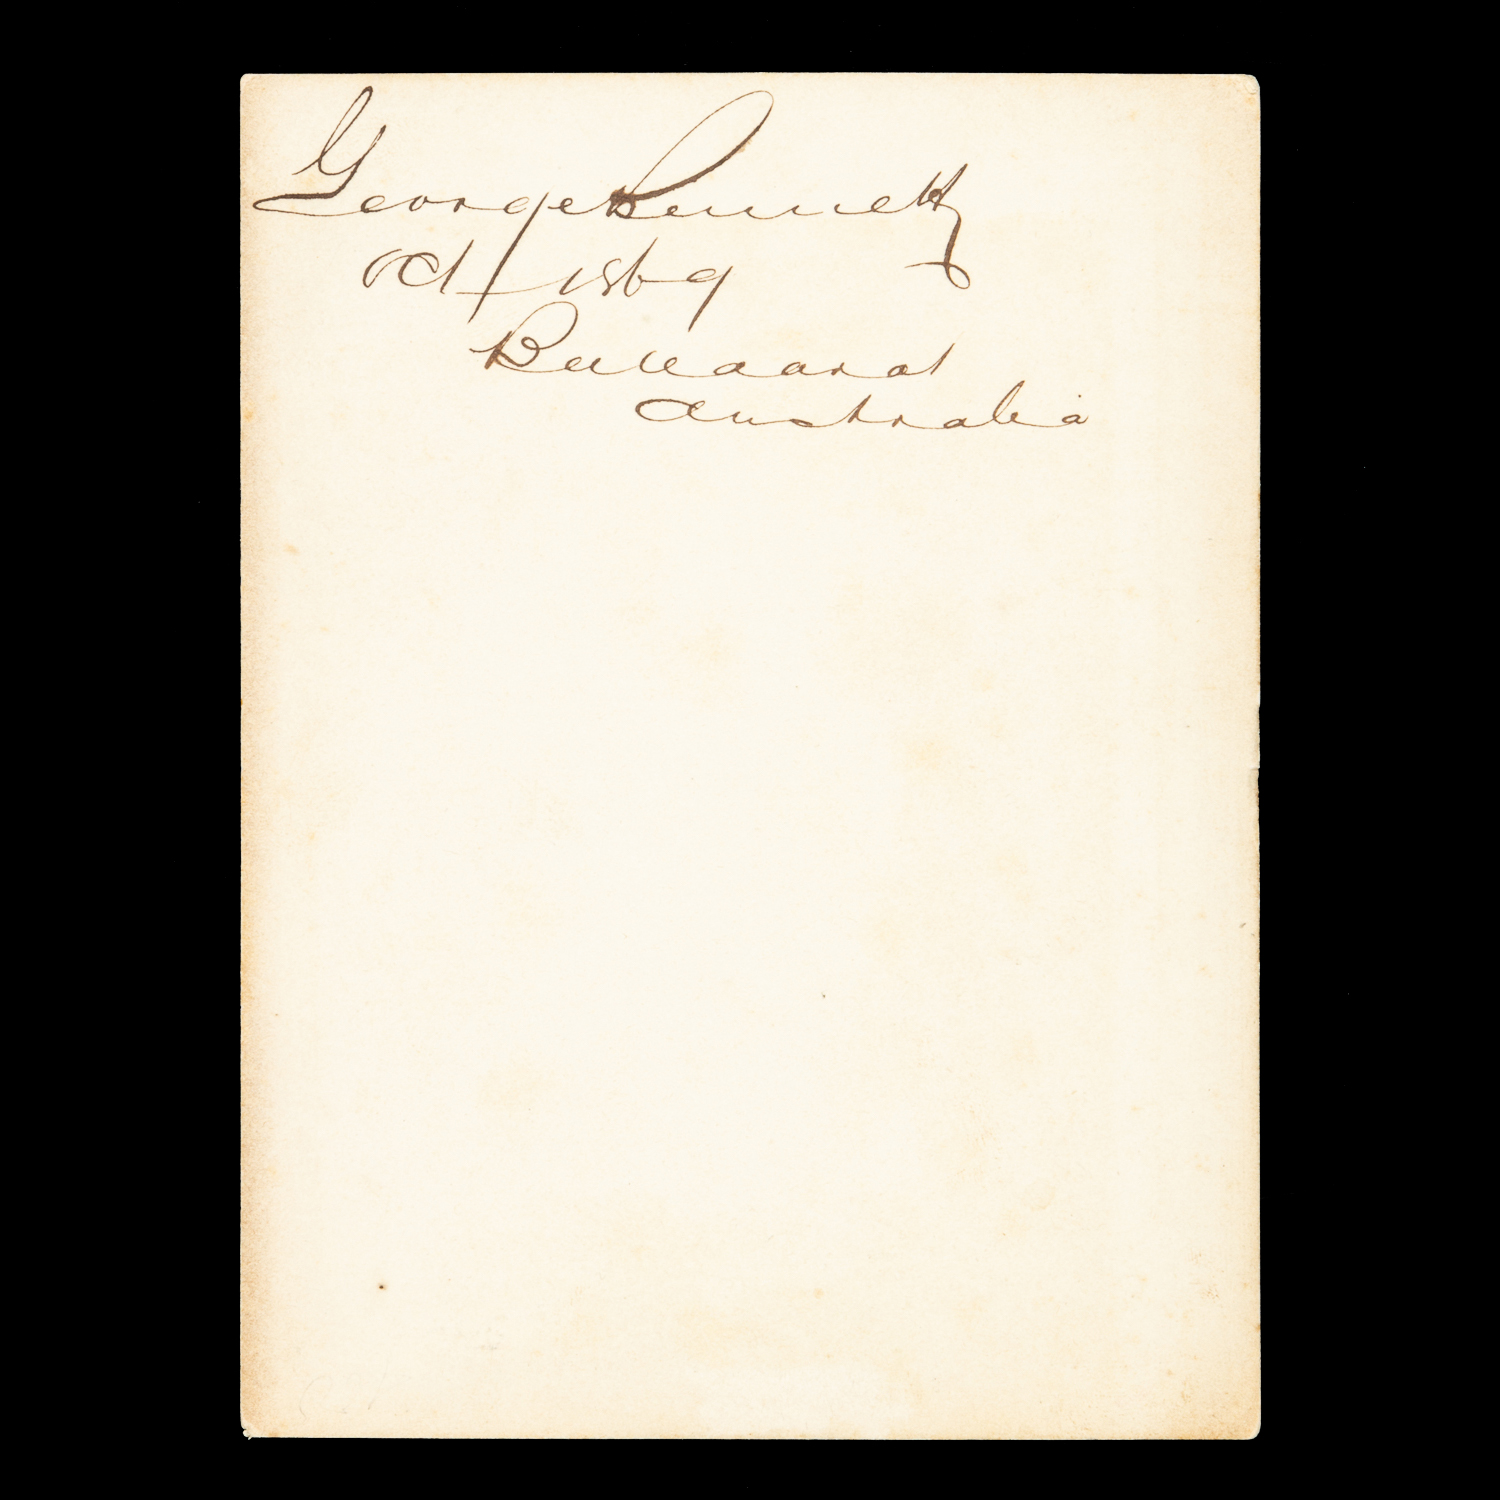 George Bennett
Oct / 1869
Ballaarat
Australia